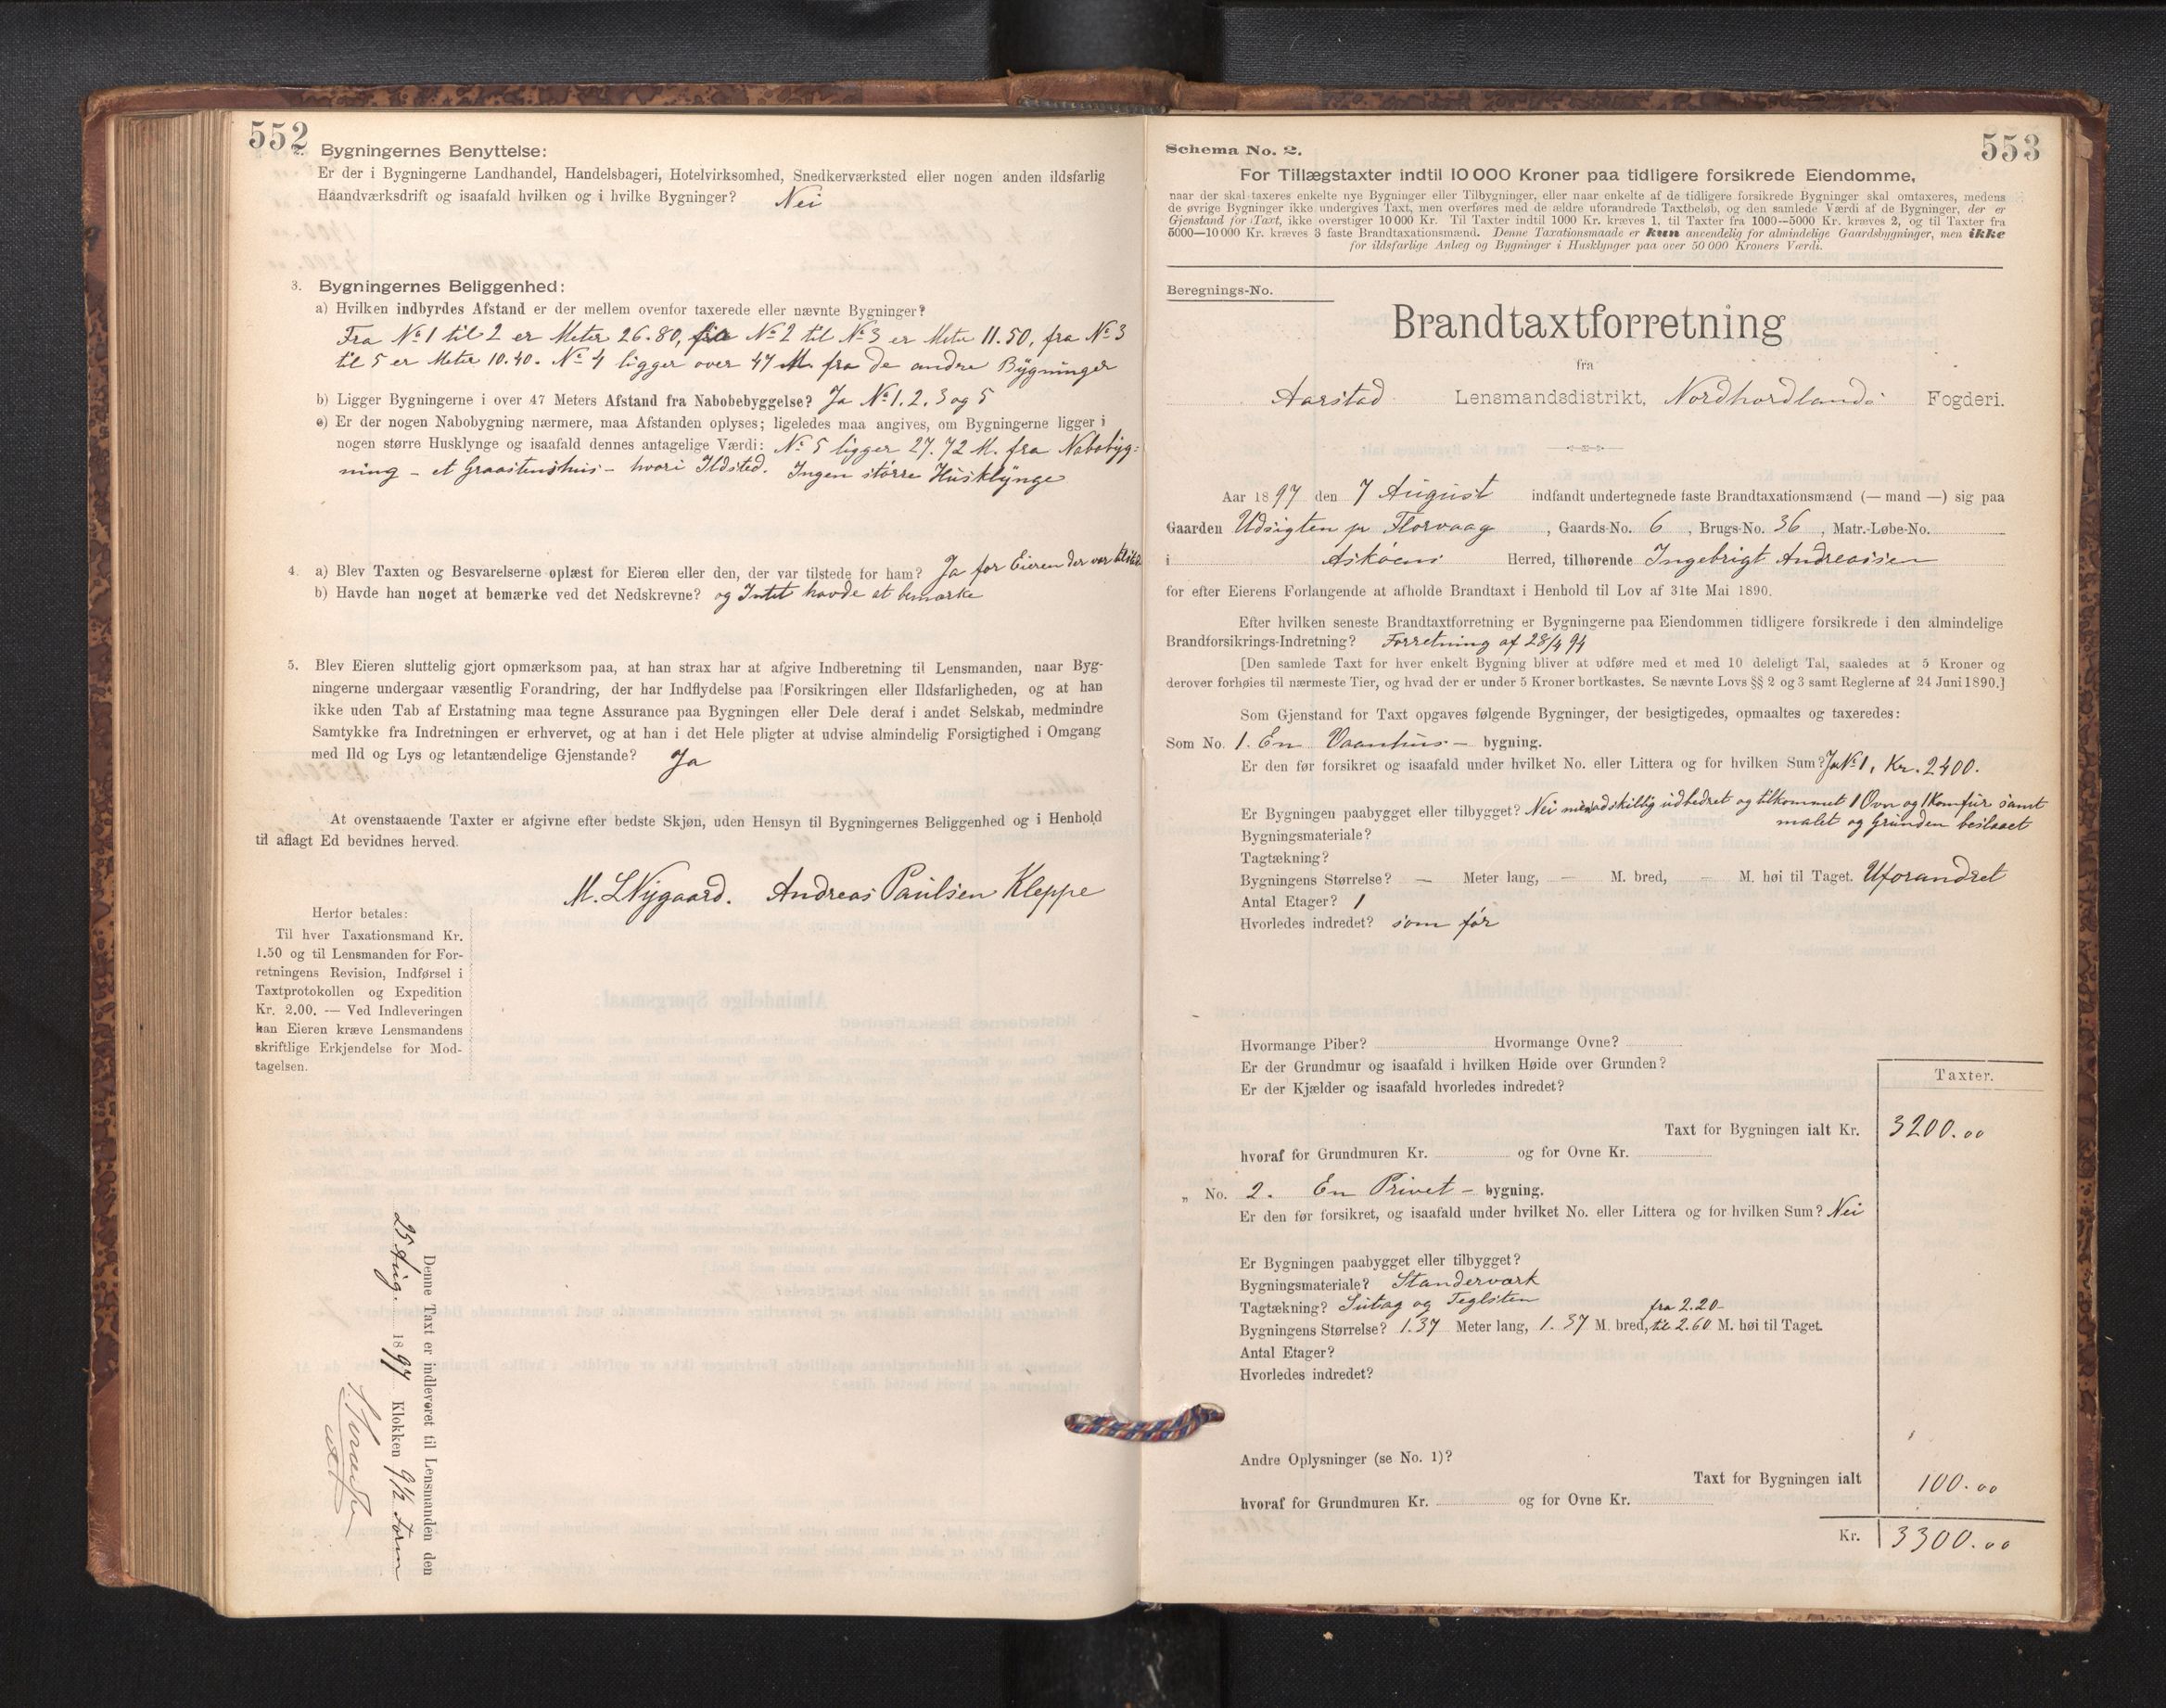 552
2. Bygningernes Benyttelse:
Er der i Bygningerne Landhandel, Handelsbageri, Hotelvirksomhed, Snedkerværksted eller nogen anden ildsfarlig
Haandværksdrift og isaafald hvilken og i hvilke Bygninger? Nei
3. Bygningernes Beliggenhed:
a) Hvilken indbyrdes Afstand er der mellem ovenfor taxerede eller nævnte Bygninger?
Fra No 1 til 2 er Meter 26.80, fra No 2 til No 3 er Meter 11.50, fra No 3
til 5 er Meter 10.40. No 4 ligger over 47 M. fra de andre Bygninger
b) Ligger Bygningerne i over 47 Meters Afstand fra Nabobebyggelse? Ja No 1. 2. 3 og 5
c) Er der nogen Nabobygning nærmere, maa Afstanden oplyses; ligeledes maa angives, om Bygningerne ligger i
nogen større Husklynge og isaafald dennes antagelige Værdi: No 5 ligger 27.72 M. fra Nabobyg-
ning – et Graastenshus – hvori Ildsted. Ingen större Husklynge
4. a) Blev Taxten og Besvarelserne oplæst for Eieren eller den, der var tilstede for ham? Ja for Eieren der var tilstede
b) Havde han noget at bemærke ved det Nedskrevne? og Intet havde at bemærke
5. Blev Eieren sluttelig gjort opmærksom paa, at han strax har at afgive Indberetning til Lensmanden, naar Byg-
ningerne undergaar væsentlig Forandring, der har Indflydelse paa Forsikringen eller Ildsfarligheden, og at han
ikke uden Tab af Erstatning maa tegne Assurance paa Bygningen eller Dele deraf i andet Selskab, medmindre
Samtykke fra Indretningen er erhvervet, og at han i det Hele pligter at udvise almindelig Forsigtighed i Omgang
med Ild og Lys og letantændelige Gjenstande? Ja
At ovenstaaende Taxter er afgivne efter bedste Skjøn, uden Hensyn til Bygningernes Beliggenhed og i Henhold
til aflagt Ed bevidnes herved.
M. L Nygaard. Andreas Paulsen Kleppe
Herfor betales:
Til hver Taxationsmand Kr.
1.50 og til Lensmanden for For-
retningens Revision, Indførsel i
Taxtprotokollen og Expedition
Kr. 2.00. — Ved Indleveringen
kan Eieren kræve Lensmandens
skriftlige Erkjendelse for Mod-
tagelsen.
Denne Taxt er indleveret til Lensmanden den
25 Aug. 1897 Klokken 9 1/2 Form
553
Schema No. 2.
For Tillægstaxter indtil 10 000 Kroner paa tidligere forsikrede Eiendomme,
naar der skal taxeres enkelte nye Bygninger eller Tilbygninger, eller naar enkelte af de tidligere forsikrede Bygninger skal omtaxeres, medens
de øvrige Bygninger ikke undergives Taxt, men overføres med de ældre uforandrede Taxtbeløb, og den samlede Værdi af de Bygninger, der er
Gjenstand for Taxt, ikke overstiger 10 000 Kr. Til Taxter indtil 1000 Kr. kræves 1, til Taxter fra 1000—5000 Kr. kræves 2, og til Taxter fra
5000—10 000 Kr. kræves 3 faste Brandtaxationsmænd. Denne Taxationsmaade er kun anvendelig for almindelige Gaardsbygninger, men ikke
for ildsfarlige Anlæg og Bygninger i Husklynger paa over 50 000 Kroners Værdi.
Beregnings-No.
Brandtaxtforretning
fra
Aarstad Lensmandsdistrikt, Nordhordlands Fogderi.
Aar 1897 den 7 August indfandt undertegnede faste Brandtaxationsmænd (— mand —) sig paa
Gaarden Udsigten pr Florvaag, Gaards-No. 6, Brugs-No. 36, Matr.-Løbe-No.
i Asköens Herred, tilhørende Ingebrigt Andreassen
for efter Eierens Forlangende at afholde Brandtaxt i Henhold til Lov af 31te Mai 1890.
Efter hvilken seneste Brandtaxtforretning er Bygningerne paa Eiendommen tidligere forsikrede i den almindelige
Brandforsikrings-Indretning? Forretning af 28/4 94
[Den samlede Taxt for hver enkelt Bygning bliver at udføre med et med 10 deleligt Tal, saaledes at 5 Kroner og
derover forhøies til nærmeste Tier, og hvad der er under 5 Kroner bortkastes. Se nævnte Lovs §§ 2 og 3 samt Reglerne af 24 Juni 1890.]
Som Gjenstand for Taxt opgaves følgende Bygninger, der besigtigedes, opmaaltes og taxeredes:
Som No. 1. En Vaanhus – bygning.
Er den før forsikret og isaafald under hvilket No. eller Littera og for hvilken Sum? Ja No 1, Kr. 2400.
Er Bygningen paabygget eller tilbygget? Nei men adskillig udbedret og tilkommet 1 Ovn og 1 Komfür samt
malet og Grunden beslaaet
Bygningsmateriale?
Tagtækning?
Bygningens Størrelse? – Meter lang, – M. bred, – M. høi til Taget. Uforandret
Antal Etager? 1
Hvorledes indredet? som för
Hvormange Piber? Hvormange Ovne?
Er der Grundmur og isaafald i hvilken Høide over Grunden?
Er der Kjælder og isaafald hvorledes indredet?
Taxter.
Taxt for Bygningen ialt Kr. 3200.00
hvoraf for Grundmuren Kr. og for Ovne Kr.
„ No. 2. En Privet – bygning.
Er den før forsikret, og isaafald under hvilket No. eller Littera og for hvilken Sum? Nei
Er Bygningen paabygget eller tilbygget?
Bygningsmateriale? Standerværk
Tagtækning? Sutag og Teglsten
Bygningens Størrelse? 1.37 Meter lang, 1.37 M. bred, fra 2.20 til 2.60 M. høi til Taget.
Antal Etager?
Hvorledes indredet?
Andre Oplysninger (se No. 1)?
Taxt for Bygningen ialt 100.00
hvoraf for Grundmuren Kr. og for Ovne Kr.
Kr. 3300.00